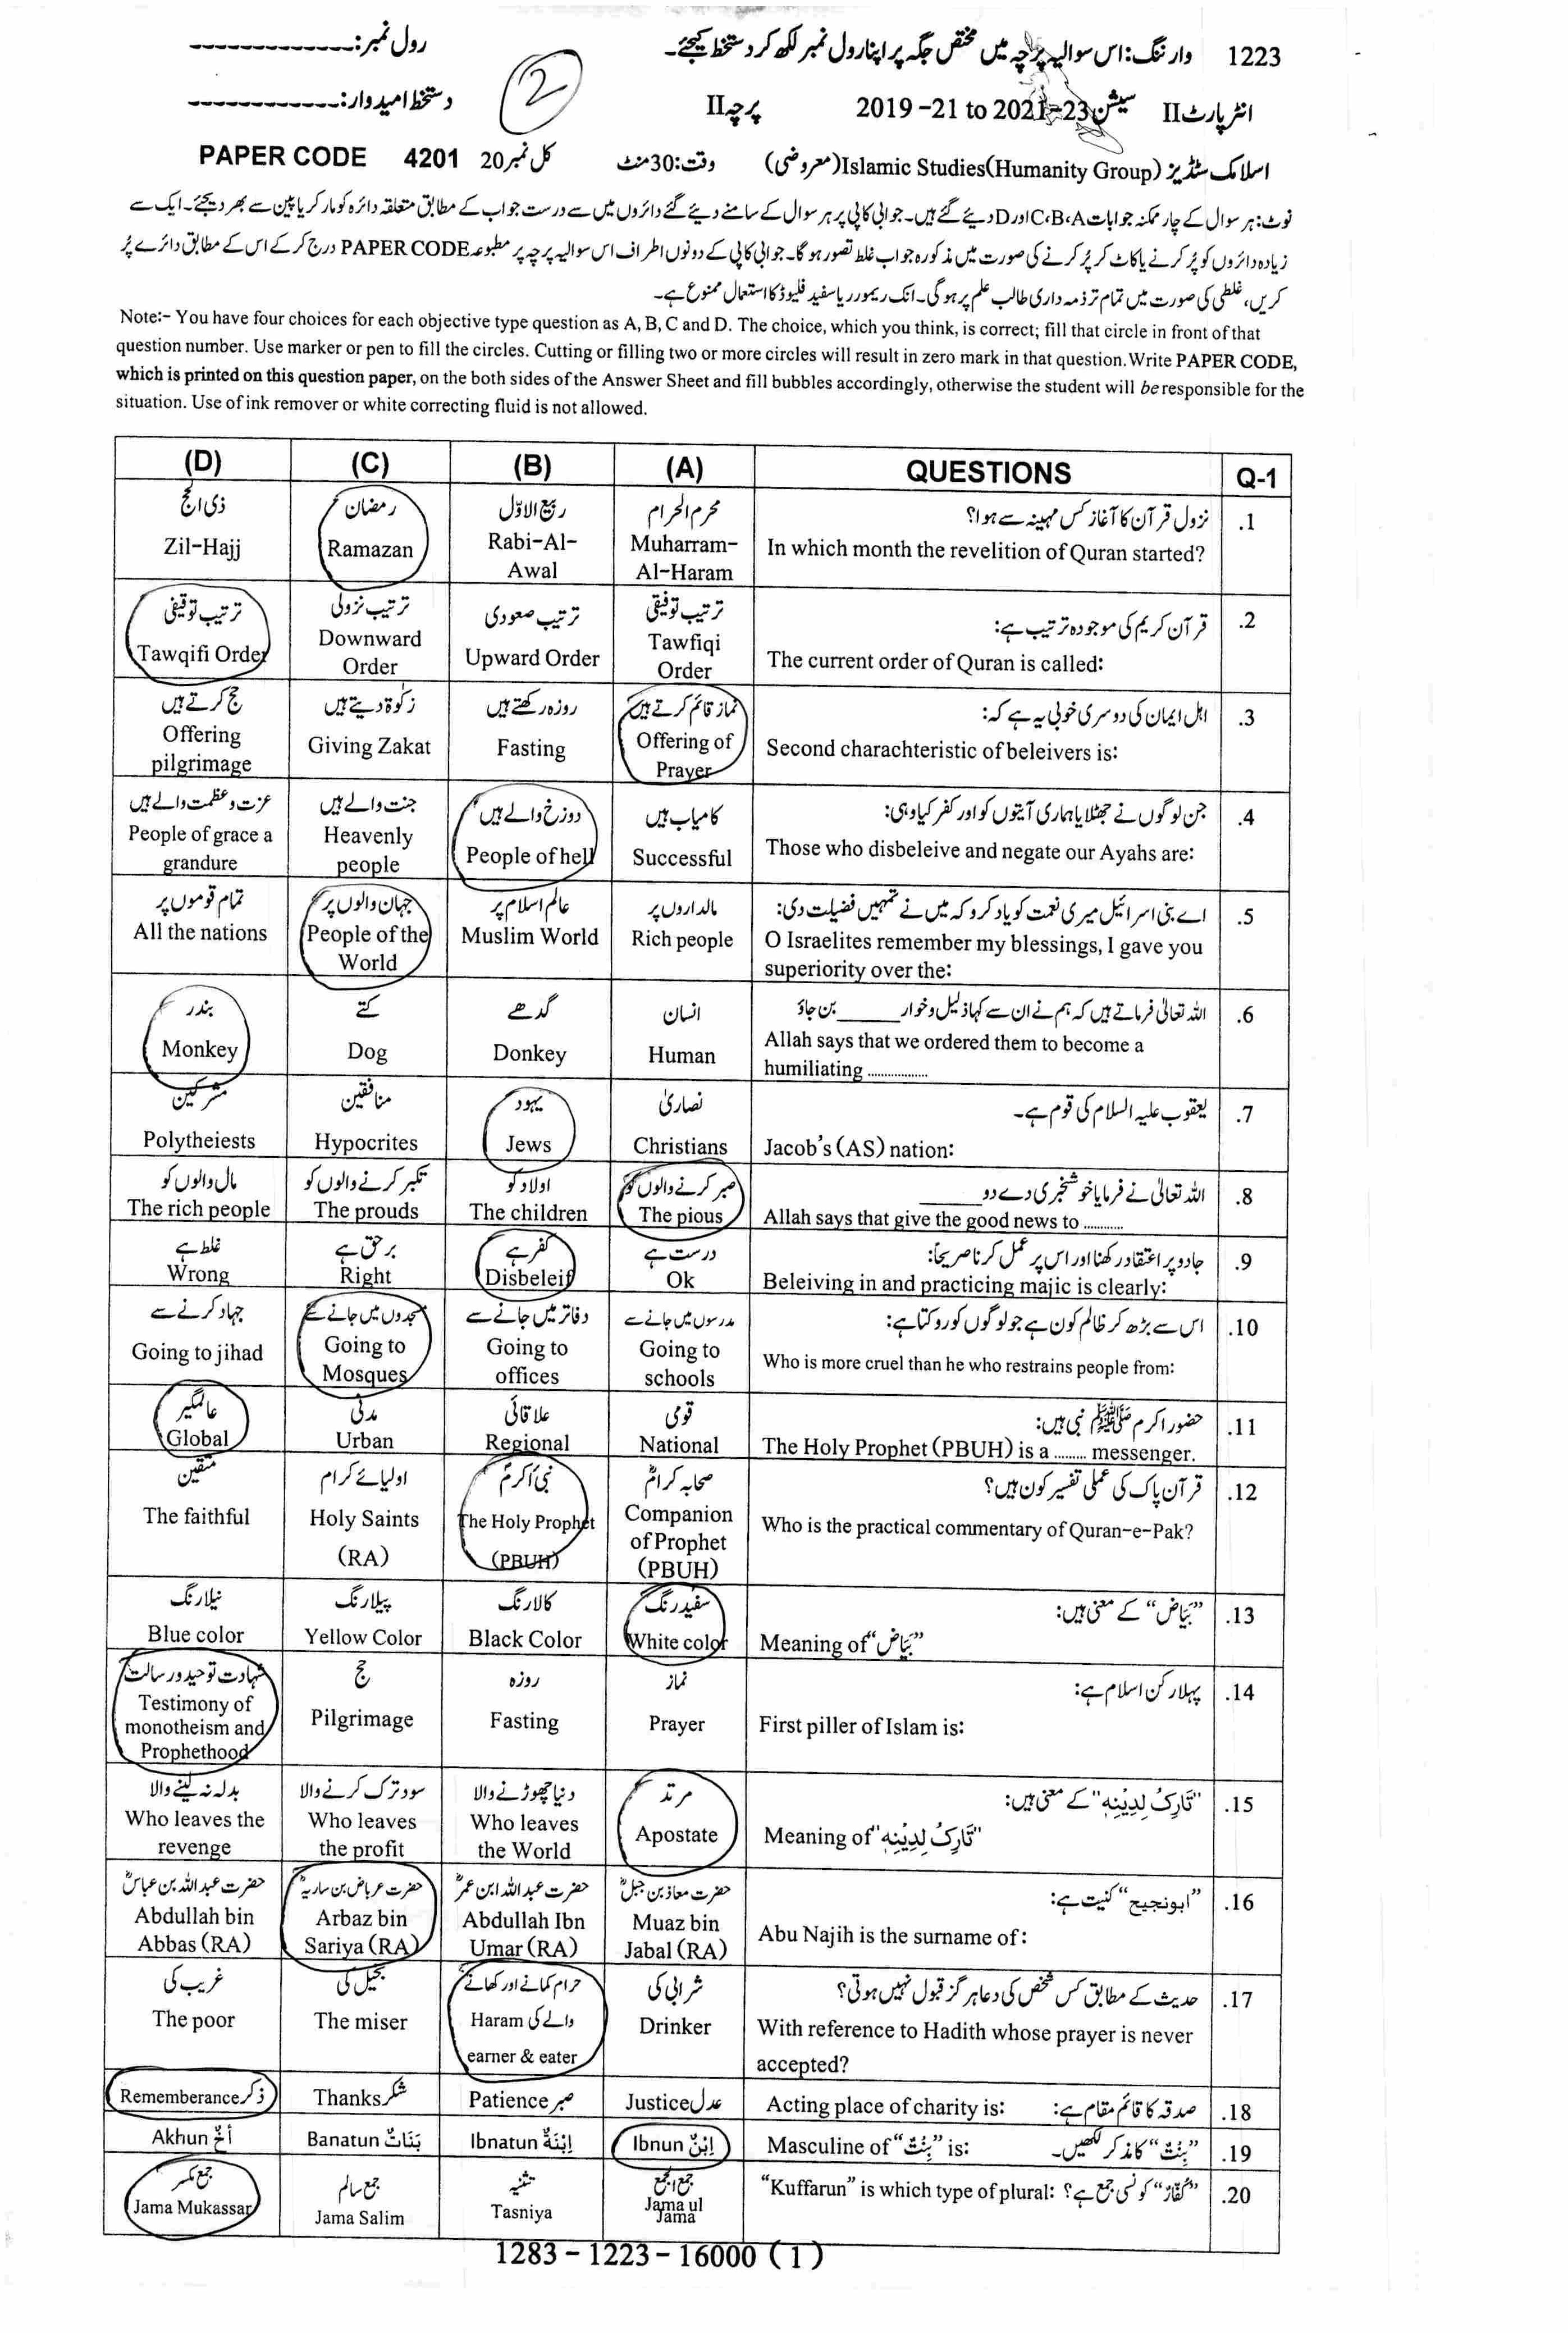 1223 وارننگ: اس سوالیہ پرچہ میں مختص جگہ پر اپنا رول نمبر لکھ کر دستخط کیجئے۔ رول نمبر: -------------
انٹر پارٹ II سیشن 2019 -21 to 2021-23 پرچہ II 2 دستخط امیدوار: -------------
اسلامک سٹڈیز Islamic Studies(Humanity Group) (معروضی) وقت: 30 منٹ کل نمبر 20 PAPER CODE 4201
نوٹ: ہر سوال کے چار ممکنہ جوابات C،B،A اور D دیئے گئے ہیں۔ جوابی کاپی پر ہر سوال کے سامنے دیئے گئے دائروں میں سے درست جواب کے مطابق متعلقہ دائرہ کو مارکر یا پین سے بھر دیجئے۔ ایک سے
زیادہ دائروں کو پُر کرنے یا کاٹ کر پُر کرنے کی صورت میں مذکورہ جواب غلط تصور ہوگا۔ جوابی کاپی کے دونوں اطراف اس سوالیہ پرچہ پر مطبوعہ PAPER CODE درج کر کے اس کے مطابق دائرے پُر
کریں، غلطی کی صورت میں تمام تر ذمہ داری طالب علم پر ہوگی۔ انک ریموور یا سفید فلیوڈ کا استعمال ممنوع ہے۔
Note:- You have four choices for each objective type question as A, B, C and D. The choice, which you think, is correct; fill that circle in front of that
question number. Use marker or pen to fill the circles. Cutting or filling two or more circles will result in zero mark in that question. Write PAPER CODE,
which is printed on this question paper, on the both sides of the Answer Sheet and fill bubbles accordingly, otherwise the student will be responsible for the
situation. Use of ink remover or white correcting fluid is not allowed.
(D) (C) (B) (A) QUESTIONS Q-1
ذی الحج رمضان ربیع الاوّل محرم الحرام نزول قرآن کا آغاز کس مہینہ سے ہوا؟ .1
Zil-Hajj Ramazan Rabi-Al- Muharram- In which month the revelition of Quran started?
Awal Al-Haram
ترتیب توقیفی ترتیب نزولی ترتیب صعودی ترتیب توفیقی قرآن کریم کی موجودہ ترتیب ہے: .2
Tawqifi Order Downward Upward Order Tawfiqi The current order of Quran is called:
Order Order
حج کرتے ہیں زکوٰۃ دیتے ہیں روزہ رکھتے ہیں نماز قائم کرتے ہیں اہل ایمان کی دوسری خوبی یہ ہے کہ: .3
Offering Giving Zakat Fasting Offering of Second charachteristic of beleivers is:
pilgrimage Prayer
عزت و عظمت والے ہیں جنت والے ہیں دوزخ والے ہیں کامیاب ہیں جن لوگوں نے جھٹلایا ہماری آیتوں کو اور کفر کیا وہی: .4
People of grace a Heavenly People of hell Successful Those who disbeleive and negate our Ayahs are:
grandure people
تمام قوموں پر جہان والوں پر عالم اسلام پر مالداروں پر اے بنی اسرائیل میری نعمت کو یاد کرو کہ میں نے تمہیں فضیلت دی: .5
All the nations People of the Muslim World Rich people O Israelites remember my blessings, I gave you
World superiority over the:
بندر کتے گدھے انسان اللہ تعالیٰ فرماتے ہیں کہ ہم نے ان سے کہا ذلیل و خوار ______ بن جاؤ .6
Monkey Dog Donkey Human Allah says that we ordered them to become a
humiliating ..................
مشرکین منافقین یہود نصاریٰ یعقوب علیہ السلام کی قوم ہے۔ .7
Polytheiests Hypocrites Jews Christians Jacob's (AS) nation:
مال والوں کو تکبر کرنے والوں کو اولاد کو صبر کرنے والوں کو اللہ تعالیٰ نے فرمایا خوشخبری دے دو ______ .8
The rich people The prouds The children The pious Allah says that give the good news to ............
غلط ہے برحق ہے کفر ہے درست ہے جادو پر اعتقاد رکھنا اور اس پر عمل کرنا صریحاً: .9
Wrong Right Disbeleif Ok Beleiving in and practicing majic is clearly:
جہاد کرنے سے مسجدوں میں جانے سے دفاتر میں جانے سے مدرسوں میں جانے سے اس سے بڑھ کر ظالم کون ہے جو لوگوں کو روکتا ہے: .10
Going to jihad Going to Going to Going to Who is more cruel than he who restrains people from:
Mosques offices schools
عالمگیر مدنی علاقائی قومی حضور اکرم ﷺ نبی ہیں: .11
Global Urban Regional National The Holy Prophet (PBUH) is a ......... messenger.
متقین اولیائے کرام نبی اکرمؐ صحابہ کرامؓ قرآن پاک کی عملی تفسیر کون ہیں؟ .12
The faithful Holy Saints The Holy Prophet Companion Who is the practical commentary of Quran-e-Pak?
(RA) (PBUH) of Prophet
(PBUH)
نیلا رنگ پیلا رنگ کالا رنگ سفید رنگ ”بَیَاض“ کے معنی ہیں: .13
Blue color Yellow Color Black Color White color Meaning of “بَیَاض”
شہادت توحید و رسالت حج روزہ نماز پہلا رکن اسلام ہے: .14
Testimony of Pilgrimage Fasting Prayer First piller of Islam is:
monotheism and
Prophethood
بدلہ نہ لینے والا سود ترک کرنے والا دنیا چھوڑنے والا مرتد "تَارِکُ لِدِیْنِہٖ" کے معنی ہیں: .15
Who leaves the Who leaves Who leaves Apostate Meaning of "تَارِکُ لِدِیْنِہٖ"
revenge the profit the World
حضرت عبداللہ بن عباسؓ حضرت عرباض بن ساریہؓ حضرت عبداللہ ابن عمرؓ حضرت معاذ بن جبلؓ ”ابونجیح“ کنیت ہے: .16
Abdullah bin Arbaz bin Abdullah Ibn Muaz bin Abu Najih is the surname of:
Abbas (RA) Sariya (RA) Umar (RA) Jabal (RA)
غریب کی بخیل کی حرام کمانے اور کھانے شرابی کی حدیث کے مطابق کس شخص کی دعا ہرگز قبول نہیں ہوتی؟ .17
The poor The miser Haram والے کی Drinker With reference to Hadith whose prayer is never
earner & eater accepted?
Rememberance ذکر Thanks شکر Patience صبر Justice عدل Acting place of charity is: صدقہ کا قائم مقام ہے: .18
Akhun أَخٌ Banatun بَنَاتٌ Ibnatun اِبْنَۃٌ Ibnun اِبْنٌ Masculine of “بِنْتٌ” is: ”بِنْتٌ“ کا مذکر لکھیں۔ .19
جمع مکسر جمع سالم تثنیہ جمع الجمع “Kuffarun” is which type of plural: ”کُفَّارٌ“ کونسی جمع ہے؟ .20
Jama Mukassar Jama Salim Tasniya Jama ul
Jama
1283 - 1223 - 16000 (1)